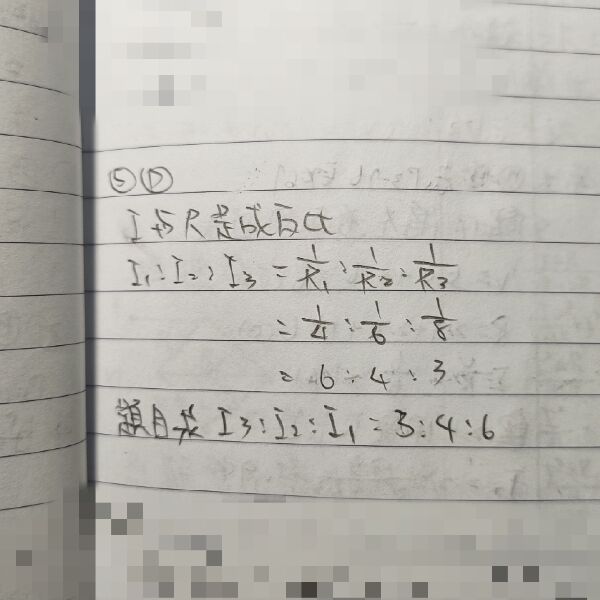 ⑤Ⓓ
I与R是成反比
I₁:I₂:I₃ = 1/R₁ : 1/R₂ : 1/R₃
= 1/4 : 1/6 : 1/8
= 6 : 4 : 3
題目求 I₃:I₂:I₁ = 3:4:6